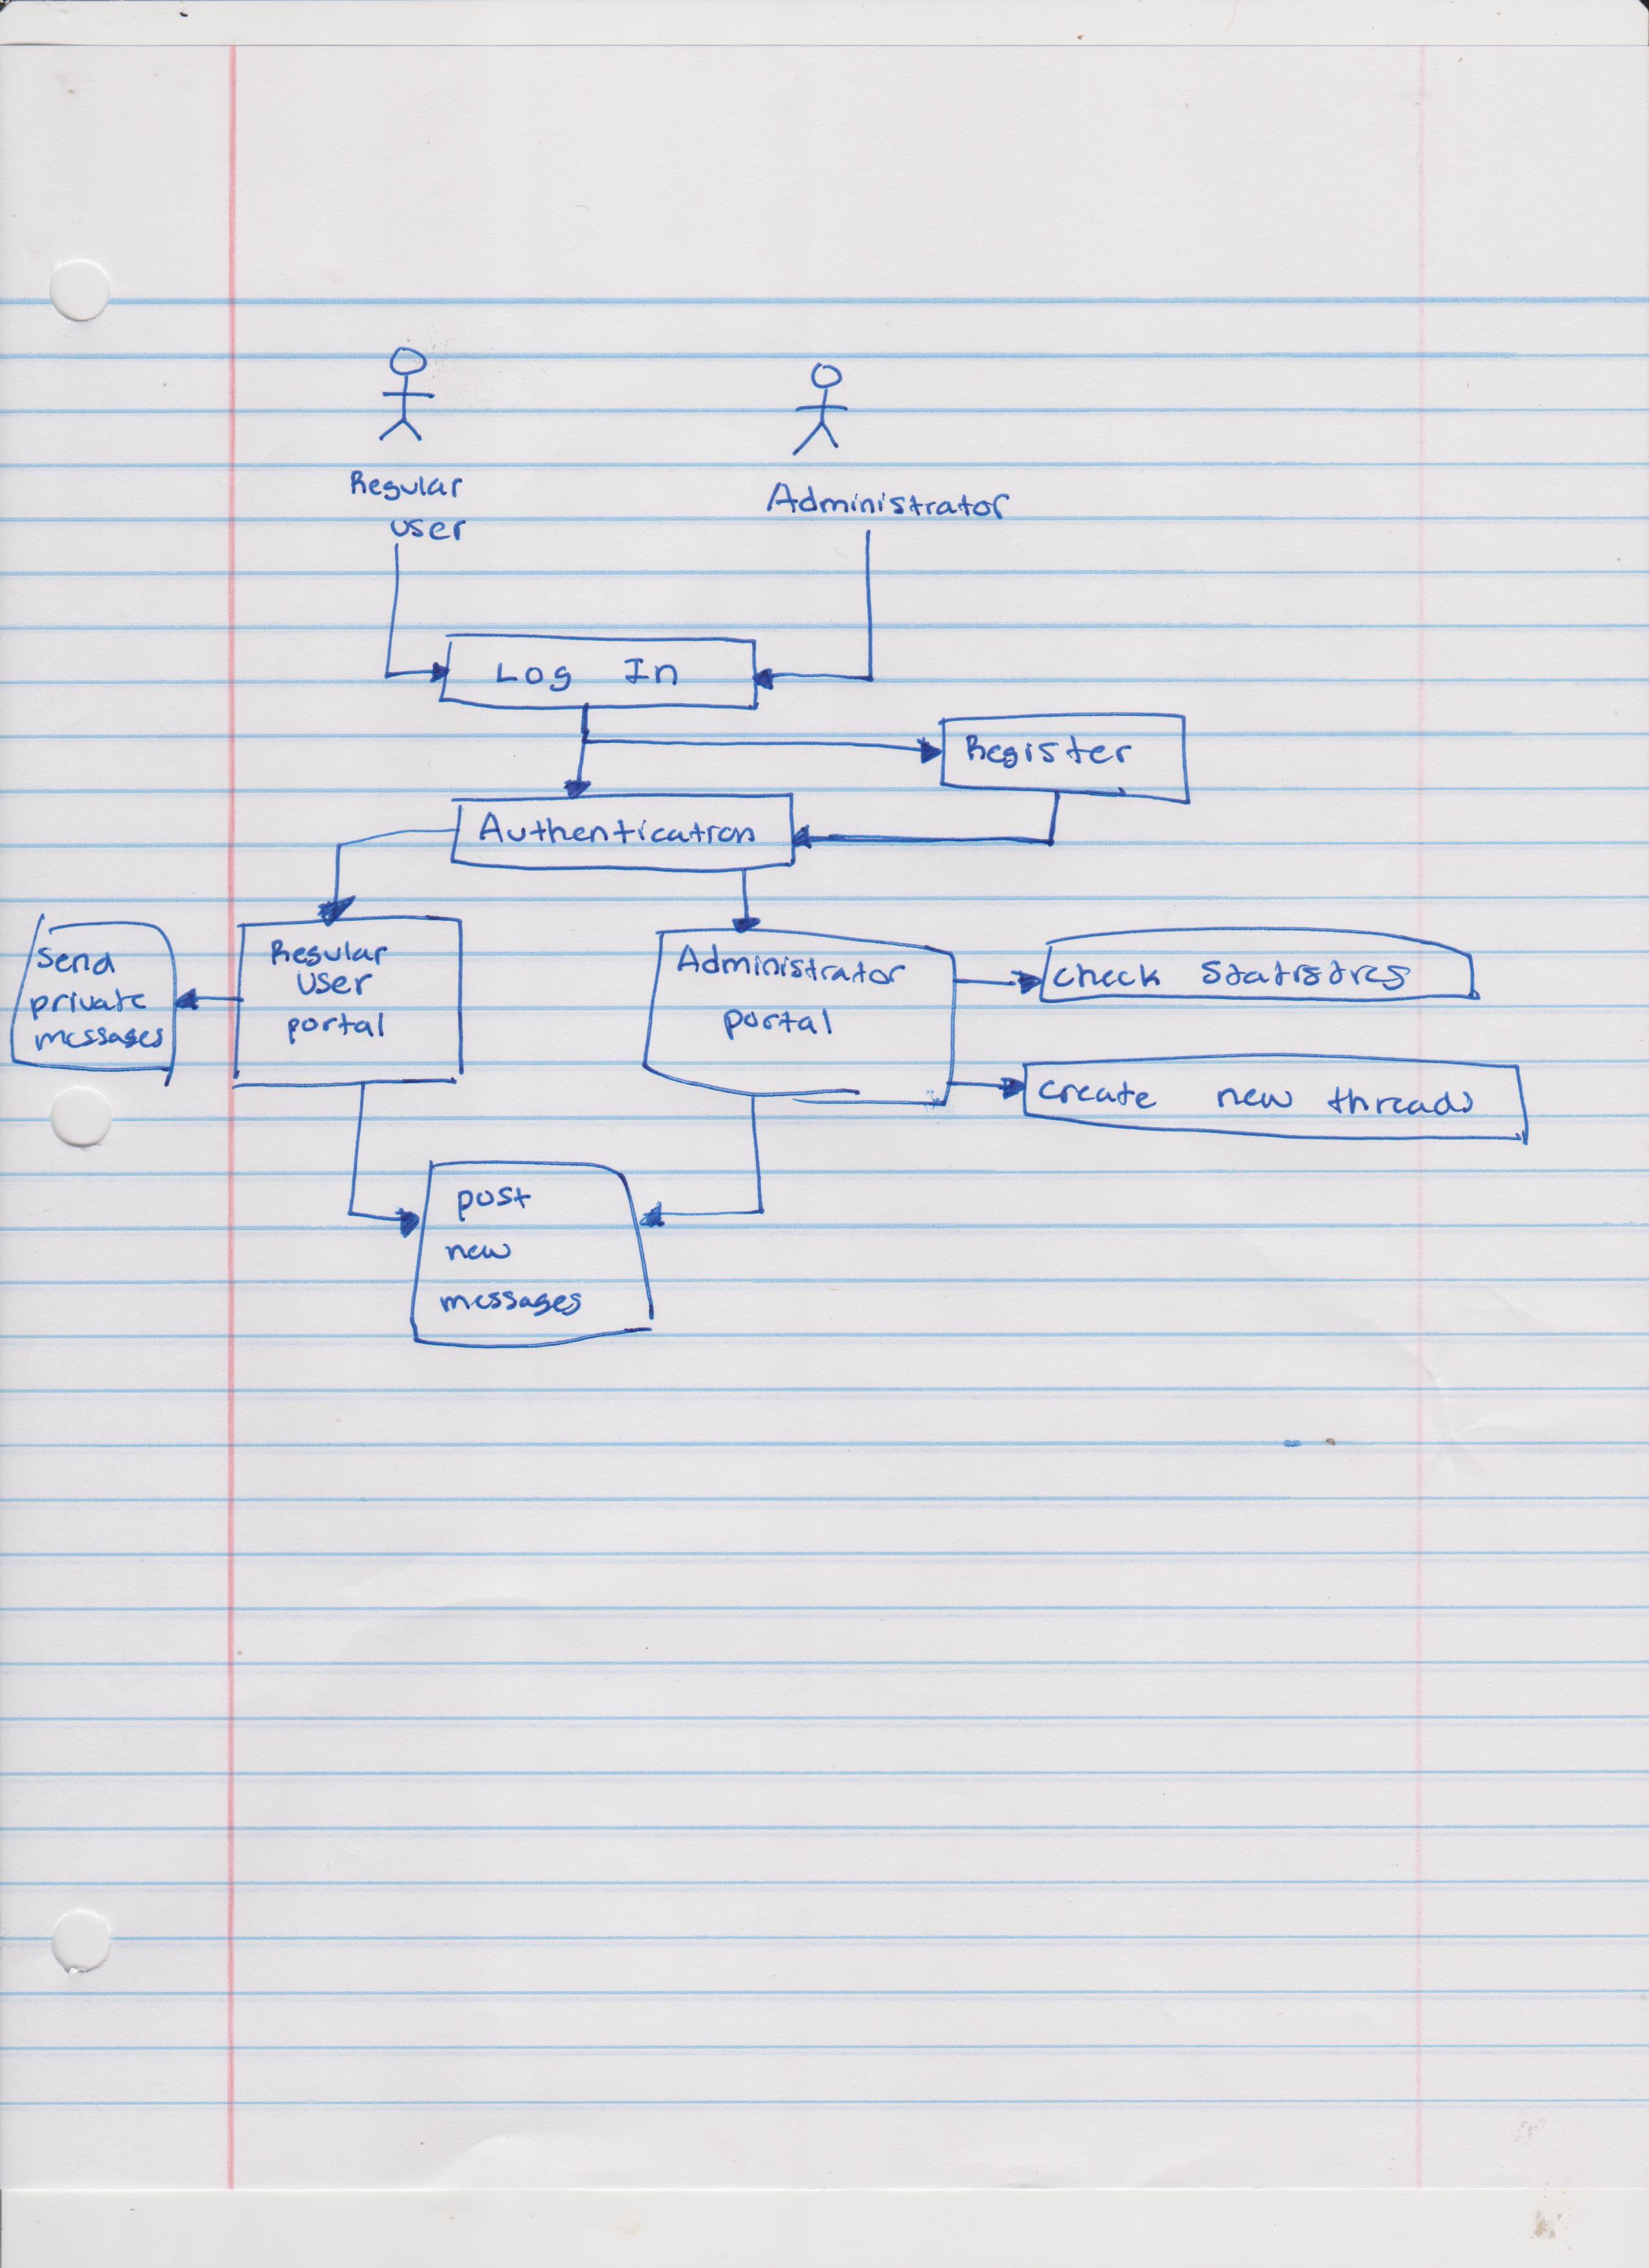 Regular
user
Administrator
Log In
Register
Authentication
Send
private
messages
Regular
User
portal
Administrator
portal
check statistics
create new threads
post
new
messages